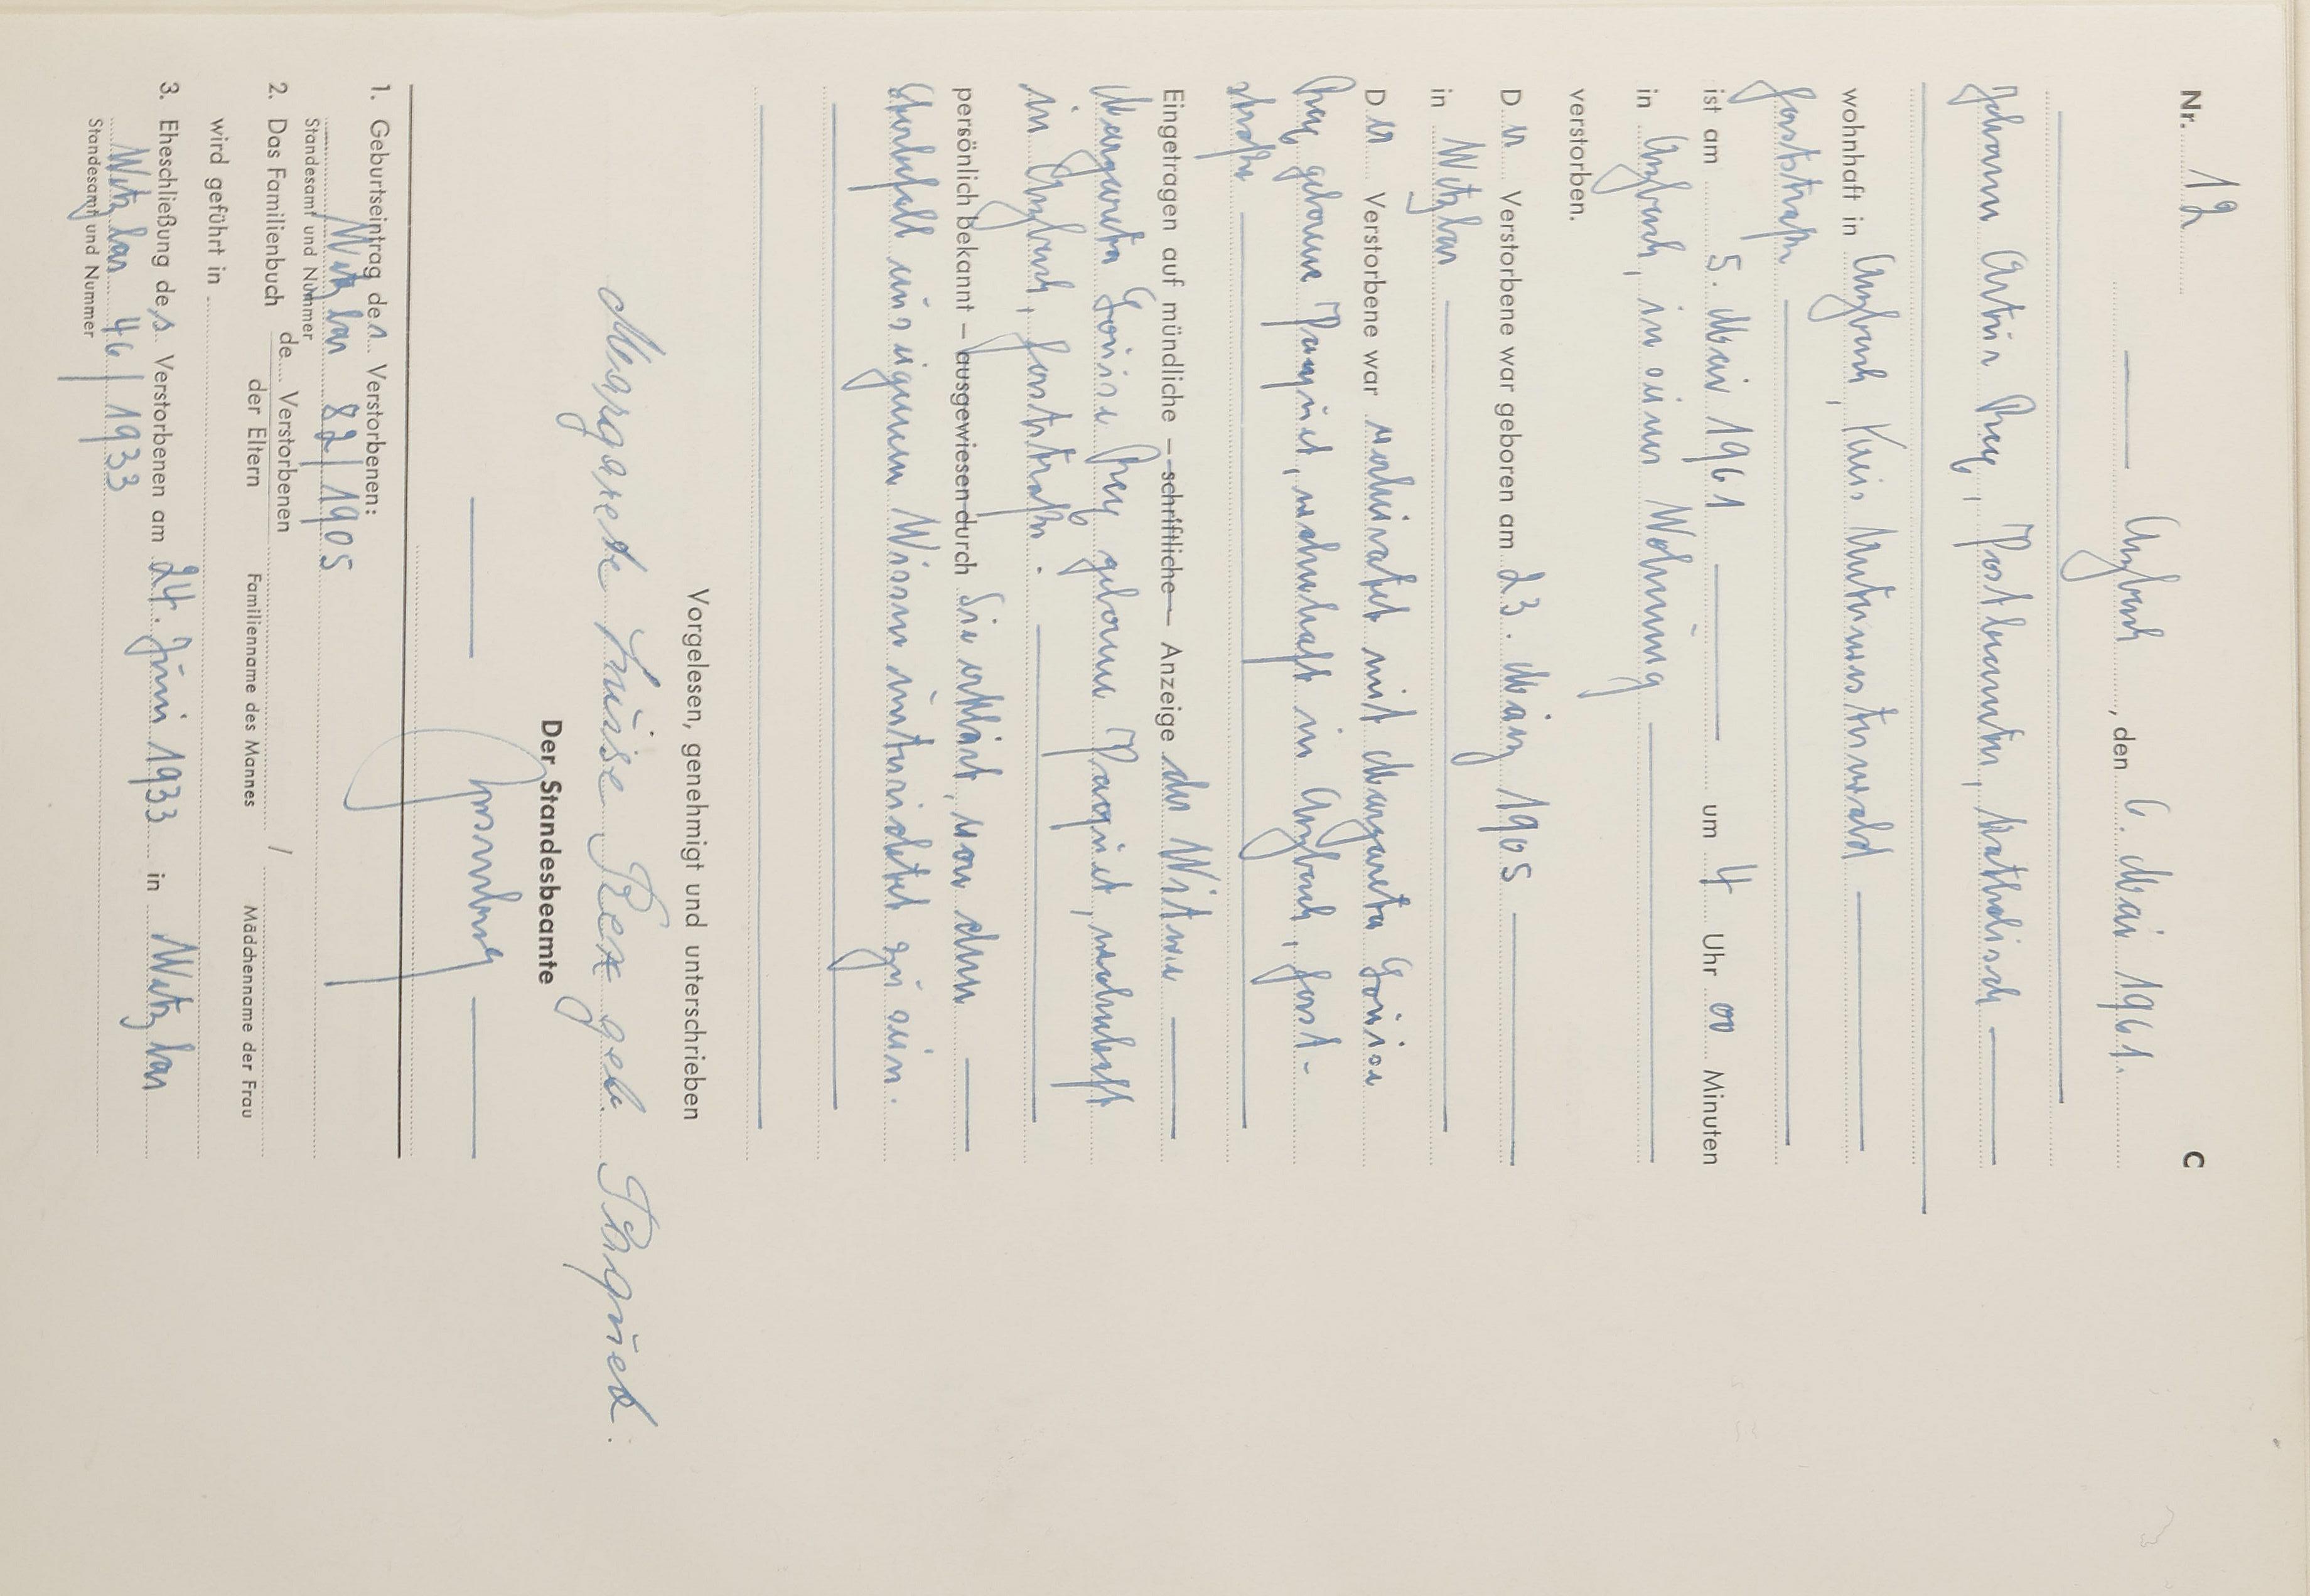 Nr. 12 C
Arzbach, den 6. Mai 1961.
Johann Artur Rex, Postbeamter, katholisch
wohnhaft in Arzbach, Kreis Unterwesterwald
Forststraße
ist am 5. Mai 1961 um 4 Uhr 00 Minuten
in Arzbach, in seiner Wohnung
verstorben.
Der Verstorbene war geboren am 23. März 1905
in Wetzlar
Der Verstorbene war verheiratet mit Margareta Louise
Rex geborene Paquet, wohnhaft in Arzbach, Forst-
straße
Eingetragen auf mündliche – schriftliche – Anzeige der Witwe
Margareta Louise Rex geborene Paquet, wohnhaft
in Arzbach, Forststraße.
persönlich bekannt – ausgewiesen durch Sie erklärt, von dem
Sterbefall aus eigenem Wissen unterrichtet zu sein.
Vorgelesen, genehmigt und unterschrieben
Margarete Luise Rex geb. Paquet.
Der Standesbeamte
1. Geburtseintrag des Verstorbenen:
Wetzlar 82/1905
Standesamt und Nummer
2. Das Familienbuch de.... Verstorbenen / der Eltern
Familienname des Mannes / Mädchenname der Frau
wird geführt in
3. Eheschließung des Verstorbenen am 24. Juni 1933 in Wetzlar
Wetzlar 46/1933
Standesamt und Nummer